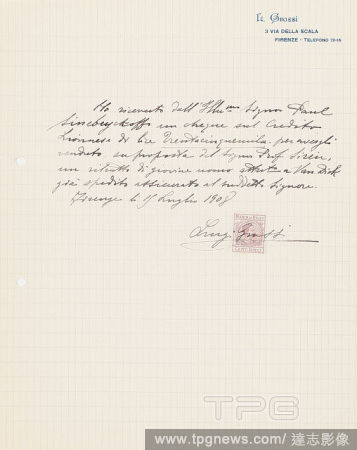 L. Grassi
3 VIA DELLA SCALA
FIRENZE - TELEFONO
Ho ricevuto dall' Ill.mo Signor Paul
Sinebryckoff un chèque sul Credito
Lionnese di lire Trentacinquemila per avergli
venduto su proposta del Signor Prof. Sirén
un ritratto di giovine uomo attrib.to a Van Dick
già spedito assicurato al suddetto Signore.
Firenze li Luglio 1908
Luigi Grassi
TPG
www.tpgnews.com/達志影像